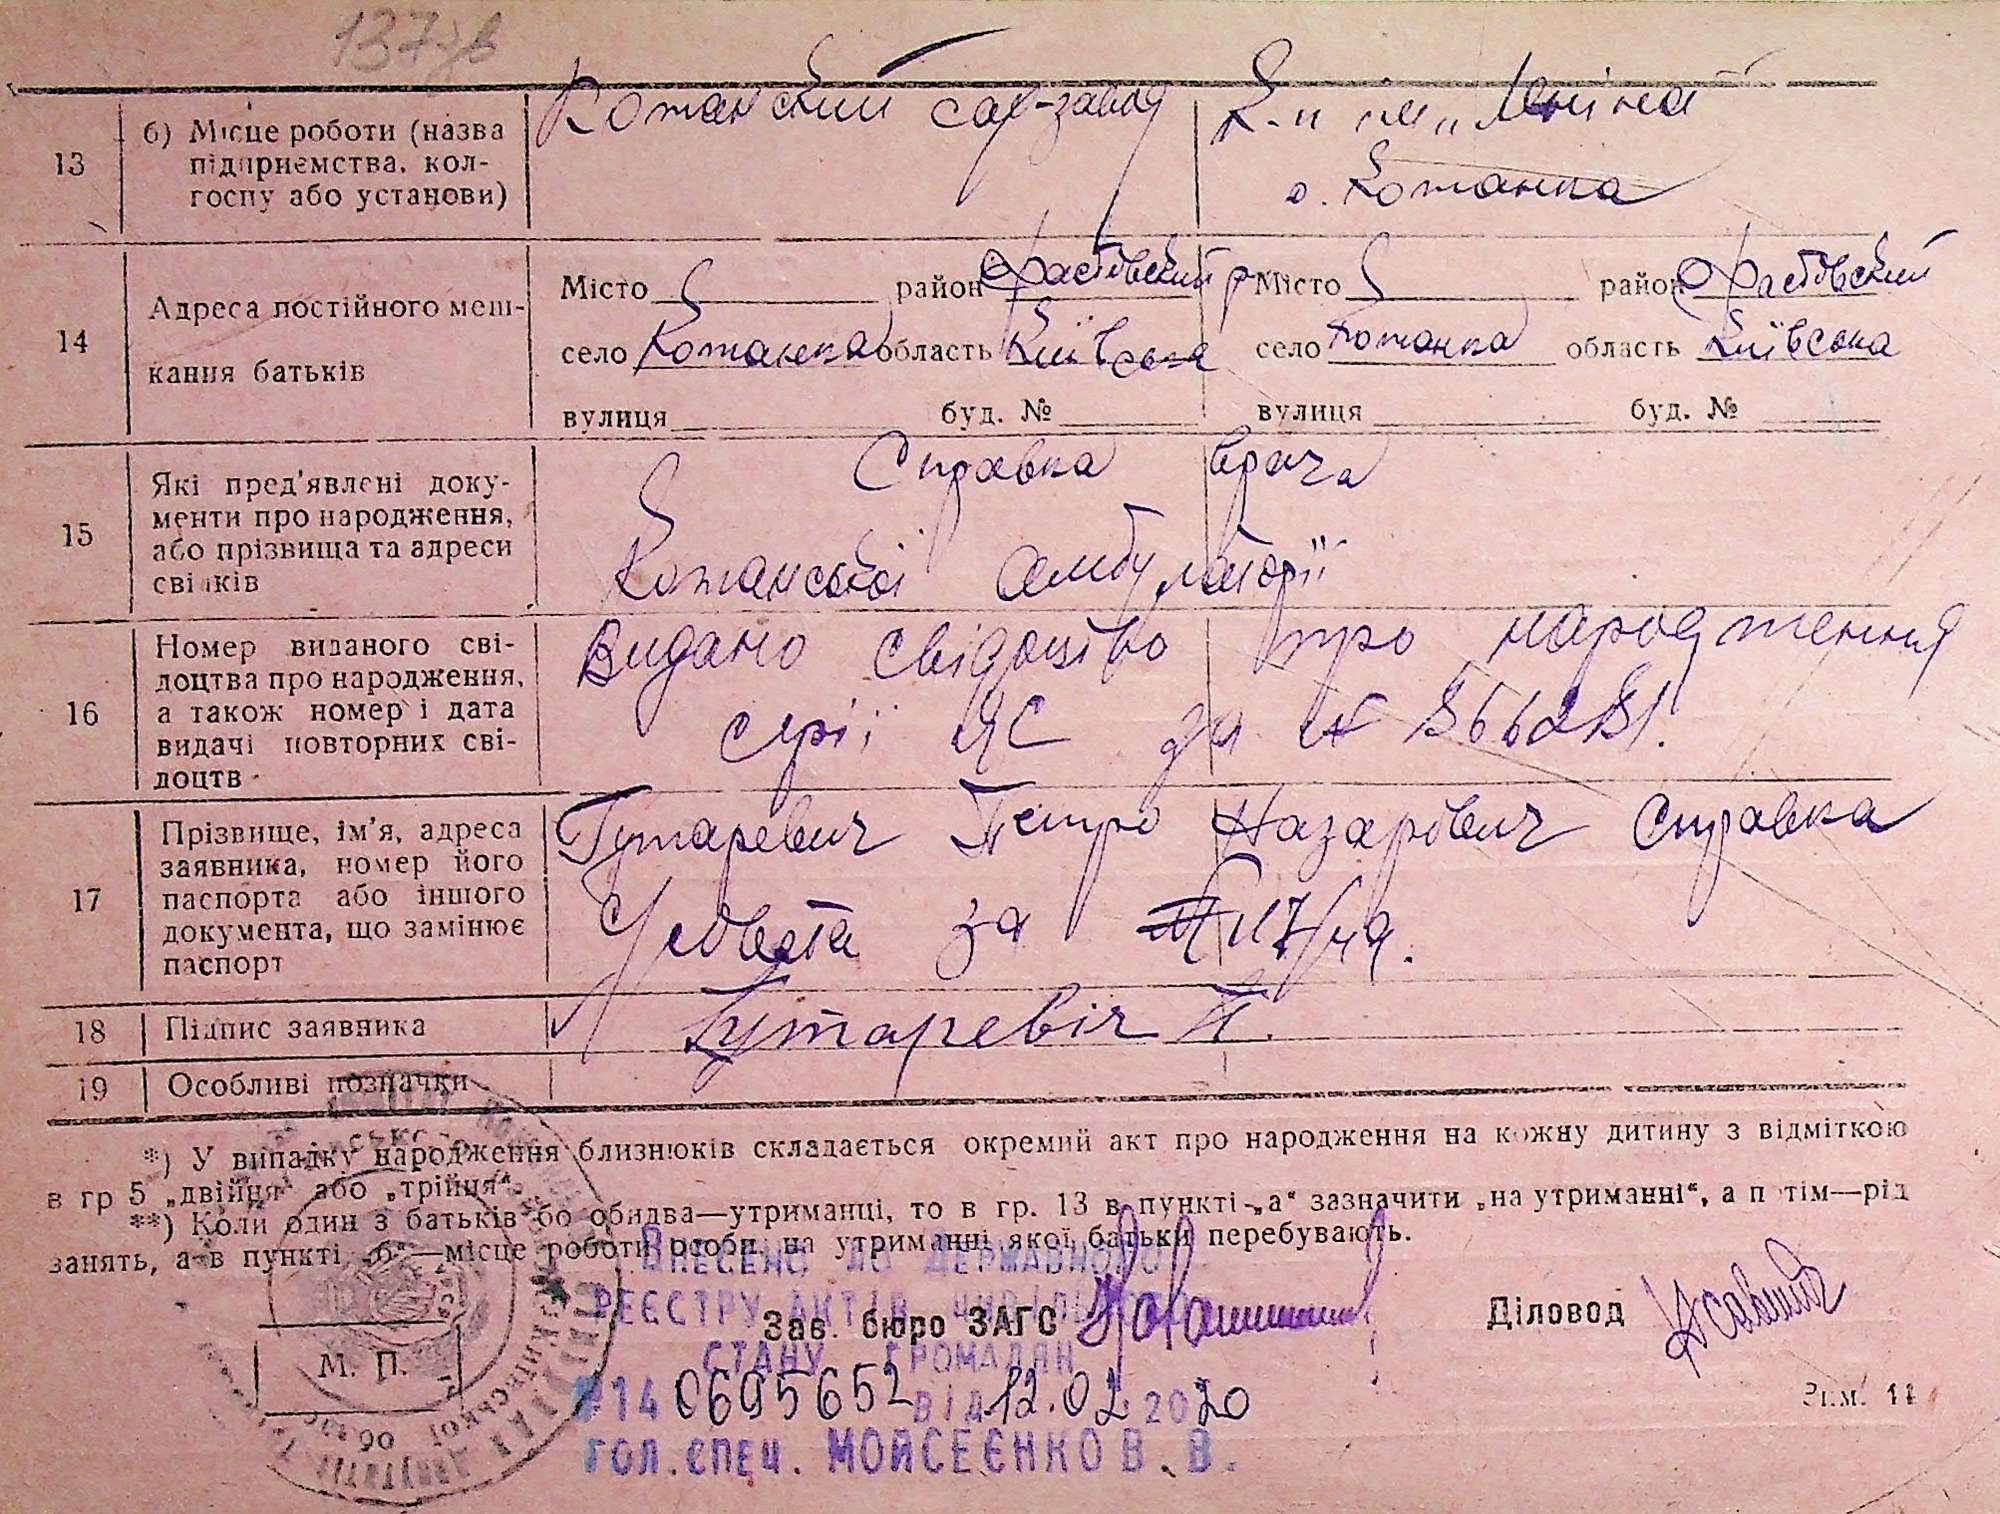 137
13
б) Місце роботи (назва
підприємства, кол-
госпу або установи)
Кожанский сах-завод
К-п ім „Леніна"
с. Кожанка
14
Адреса постійного меш-
кання батьків
Місто район Фастовский р
село Кожанка область Київська
вулиця буд. №
Місто район Фастовский
село Кожанка область Київська
вулиця буд. №
15
Які пред'явлені доку-
менти про народження,
або прізвища та адреси
свідків
Справка врача
Кожанської амбулаторії
16
Номер виданого сві-
доцтва про народження,
а також номер і дата
видачі повторних сві-
доцтв
Видано свідоцтво про народження
серії ЯС за №
17
Прізвище, ім'я, адреса
заявника, номер його
паспорта або іншого
документа, що замінює
паспорт
Гутаревич Петро Назарович Справка
за
18
Підпис заявника
Гутаревіч П.
19
Особливі позначки
*) У випадку народження близнюків складається окремий акт про народження на кожну дитину з відміткою
в гр 5 „двійня" або „трійня".
**) Коли один з батьків бо обидва—утриманці, то в гр. 13 в пункті „а" зазначити „на утриманні", а потім—рід
занять, а в пункті „б"—місце роботи особи, на утриманні якої батьки перебувають.
Внесено до державного
реєстру актів цивільного
стану громадян
№14 0695652 від 12.02.2020
гол. спец. Мойсеєнко В. В.
Зав. бюро ЗАГС
Діловод
М. П.